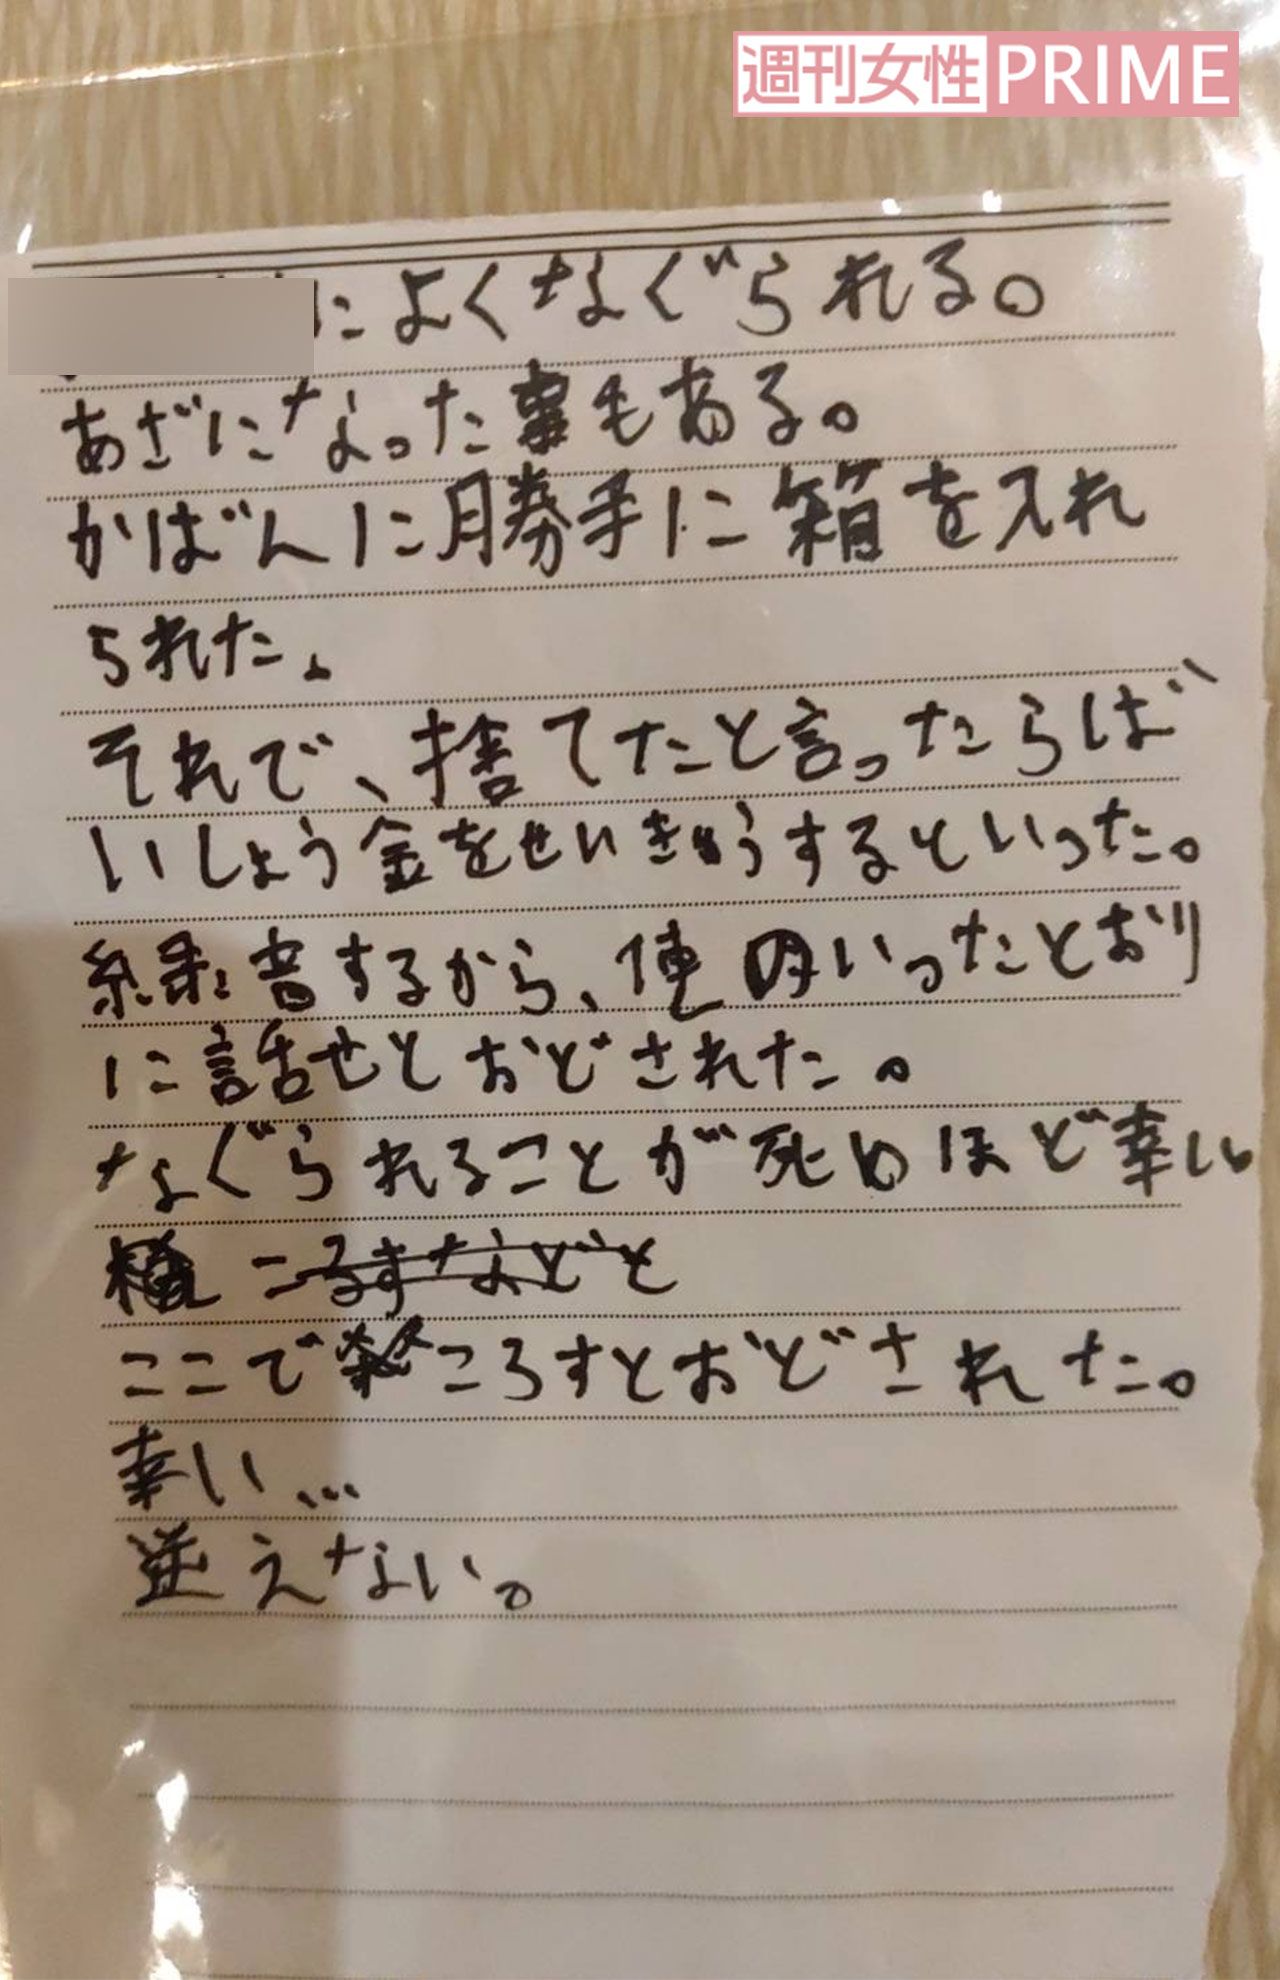 週刊女性PRIME
によくなぐられる。
あざになった事もある。
かばんに勝手に箱を入れ
られた。
それで、捨てたと言ったらば
いしょう金をせいきゅうするといった。
録音するから、俺のいったとおり
に話せとおどされた。
なぐられることが死ぬほど幸い
ころすなどと
ここでころすとおどされた。
幸い...
逆えない。